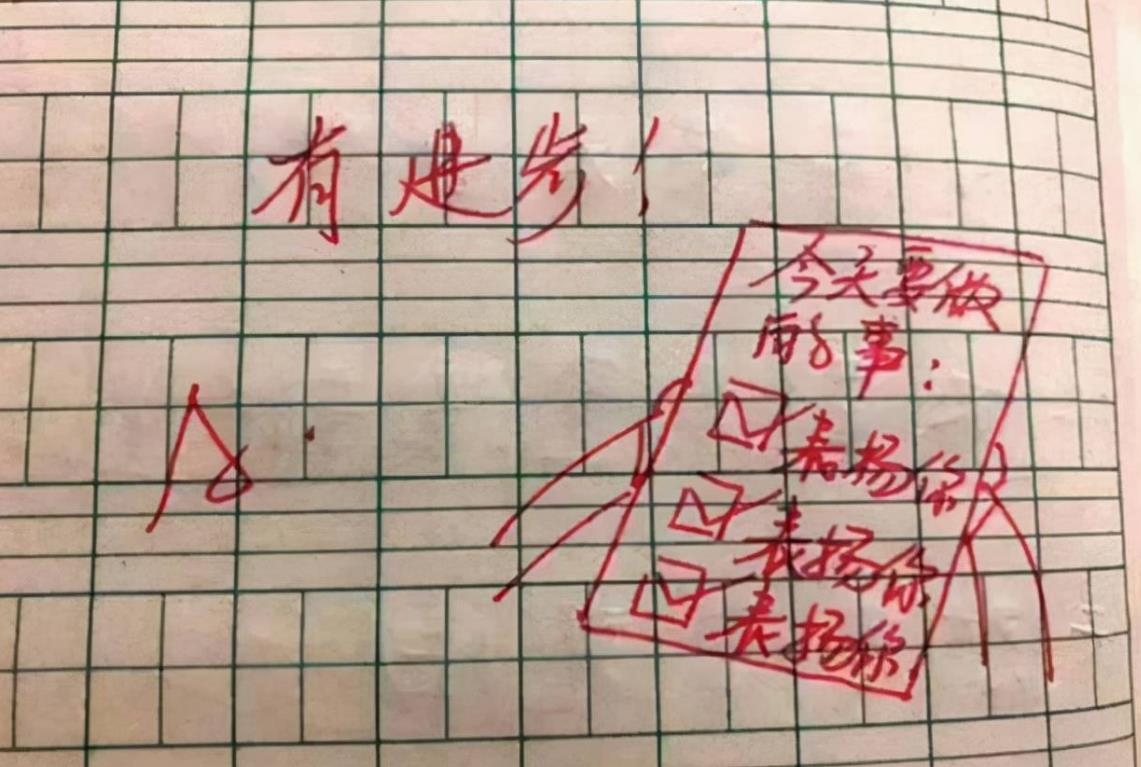 有进步！
A.
今天要做
的事：
表扬你
表扬你
表扬你